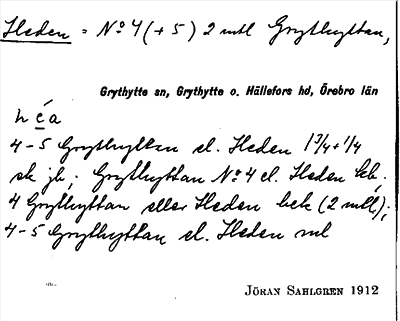 Heden = No 4 (+5) 2 mtl Grythyttan,
Grythytte sn, Grythytte o. Hällefors hd, Örebro län
héa
4-5 Grythyttan el. Heden 1 3/4 + 1/4
sk jb; Grythyttan No 4 el. Heden kb;
4 Grythyttan eller Heden bek (2 mtl);
4-5 Grythyttan el. Heden ml
JÖRAN SAHLGREN 1912